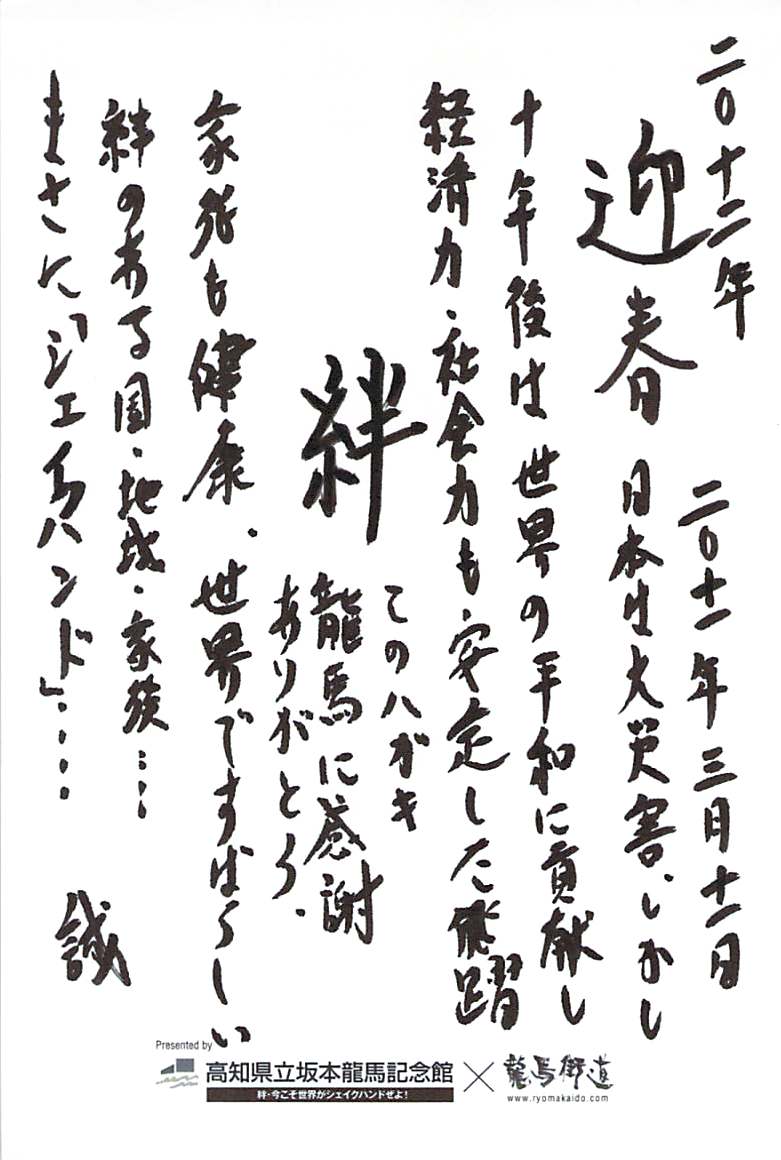 二〇十二年
迎春
二〇十一年三月十一日
日本は大災害、しかし
十年後は世界の平和に貢献し
経済力、社会力も安定した飛躍
絆
このハガキ
龍馬に感謝
ありがとう.
家族も健康.世界ですばらしい
絆のある国・地域・家族…
まさに「シェイクハンド」....
誠
Presented by
高知県立坂本龍馬記念館
絆・今こそ世界がシェイクハンドぜよ!
×
龍馬街道
www.ryomakaido.com